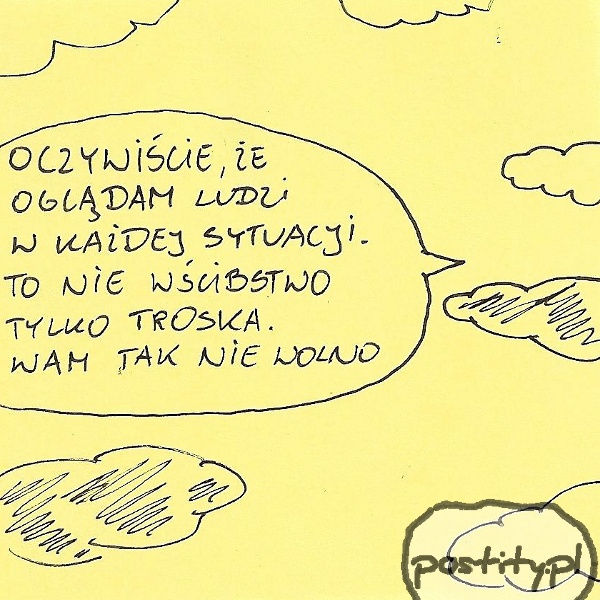 OCZYWIŚCIE, ŻE
OGLĄDAM LUDZI
W KAŻDEJ SYTUACJI.
TO NIE WŚCIBSTWO
TYLKO TROSKA.
WAM TAK NIE WOLNO
postity.pl